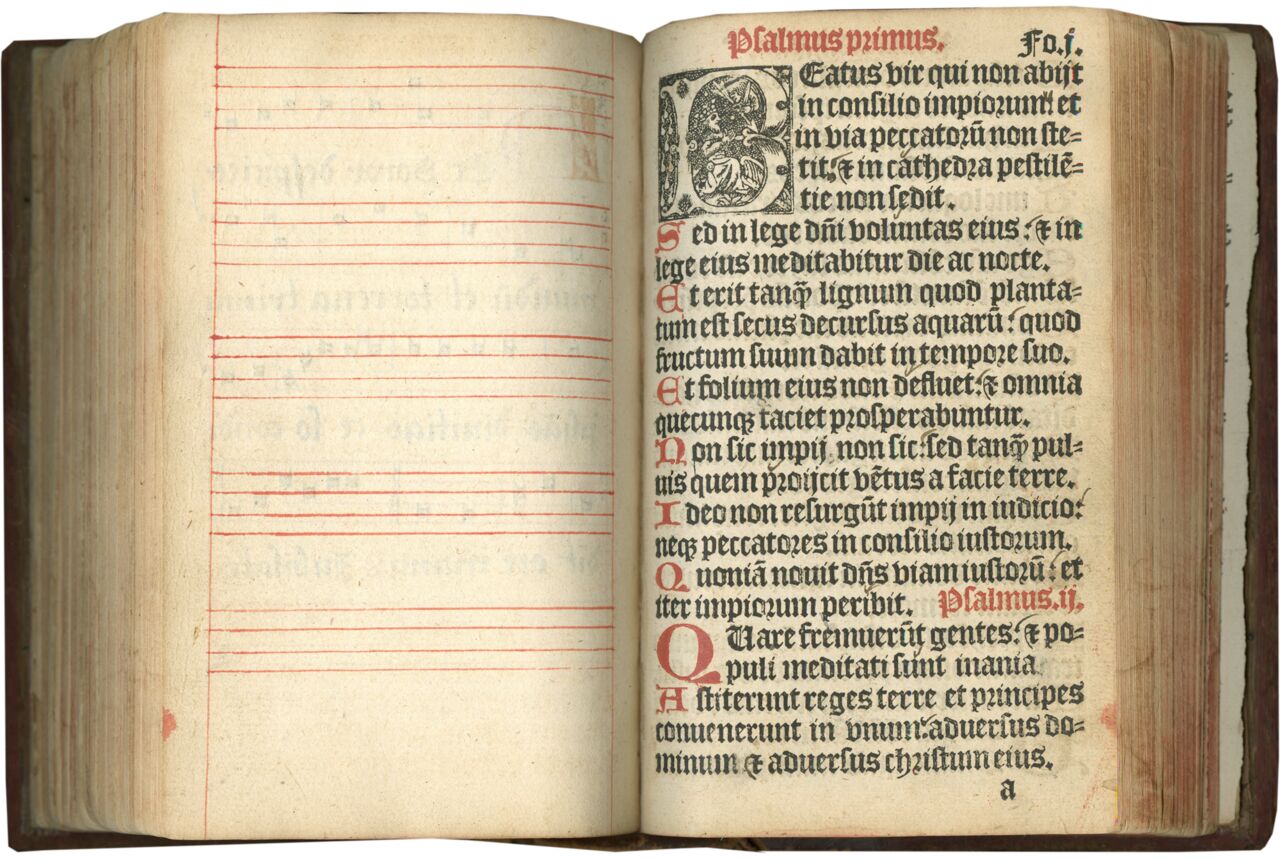 Psalmus primus. Fo.j.
BEatus vir qui non abijt
in consilio impiorum: et
in via peccatorū non ste=
tit: ⁊ in cathedra pestilē=
tie non sedit.
Sed in lege dn̄i voluntas eius: ⁊ in
lege eius meditabitur die ac nocte.
Et erit tanq̄ lignum quod planta=
tum est secus decursus aquarū: quod
fructum suum dabit in tempore suo.
Et folium eius non defluet: ⁊ omnia
quecunqꝫ faciet prosperabuntur.
Non sic impij non sic: sed tanq̄ pul=
uis quem proijcit vētus a facie terre.
Ideo non resurgūt impij in iudicio:
neqꝫ peccatores in consilio iustorum.
Quoniā nouit dn̄s viam iustorū: et
iter impiorum peribit. Psalmus.ij.
QUare fremuerūt gentes: ⁊ po=
puli meditati sunt inania
Astiterunt reges terre et principes
conuenerunt in vnum: aduersus do=
minum ⁊ aduersus christum eius.
a